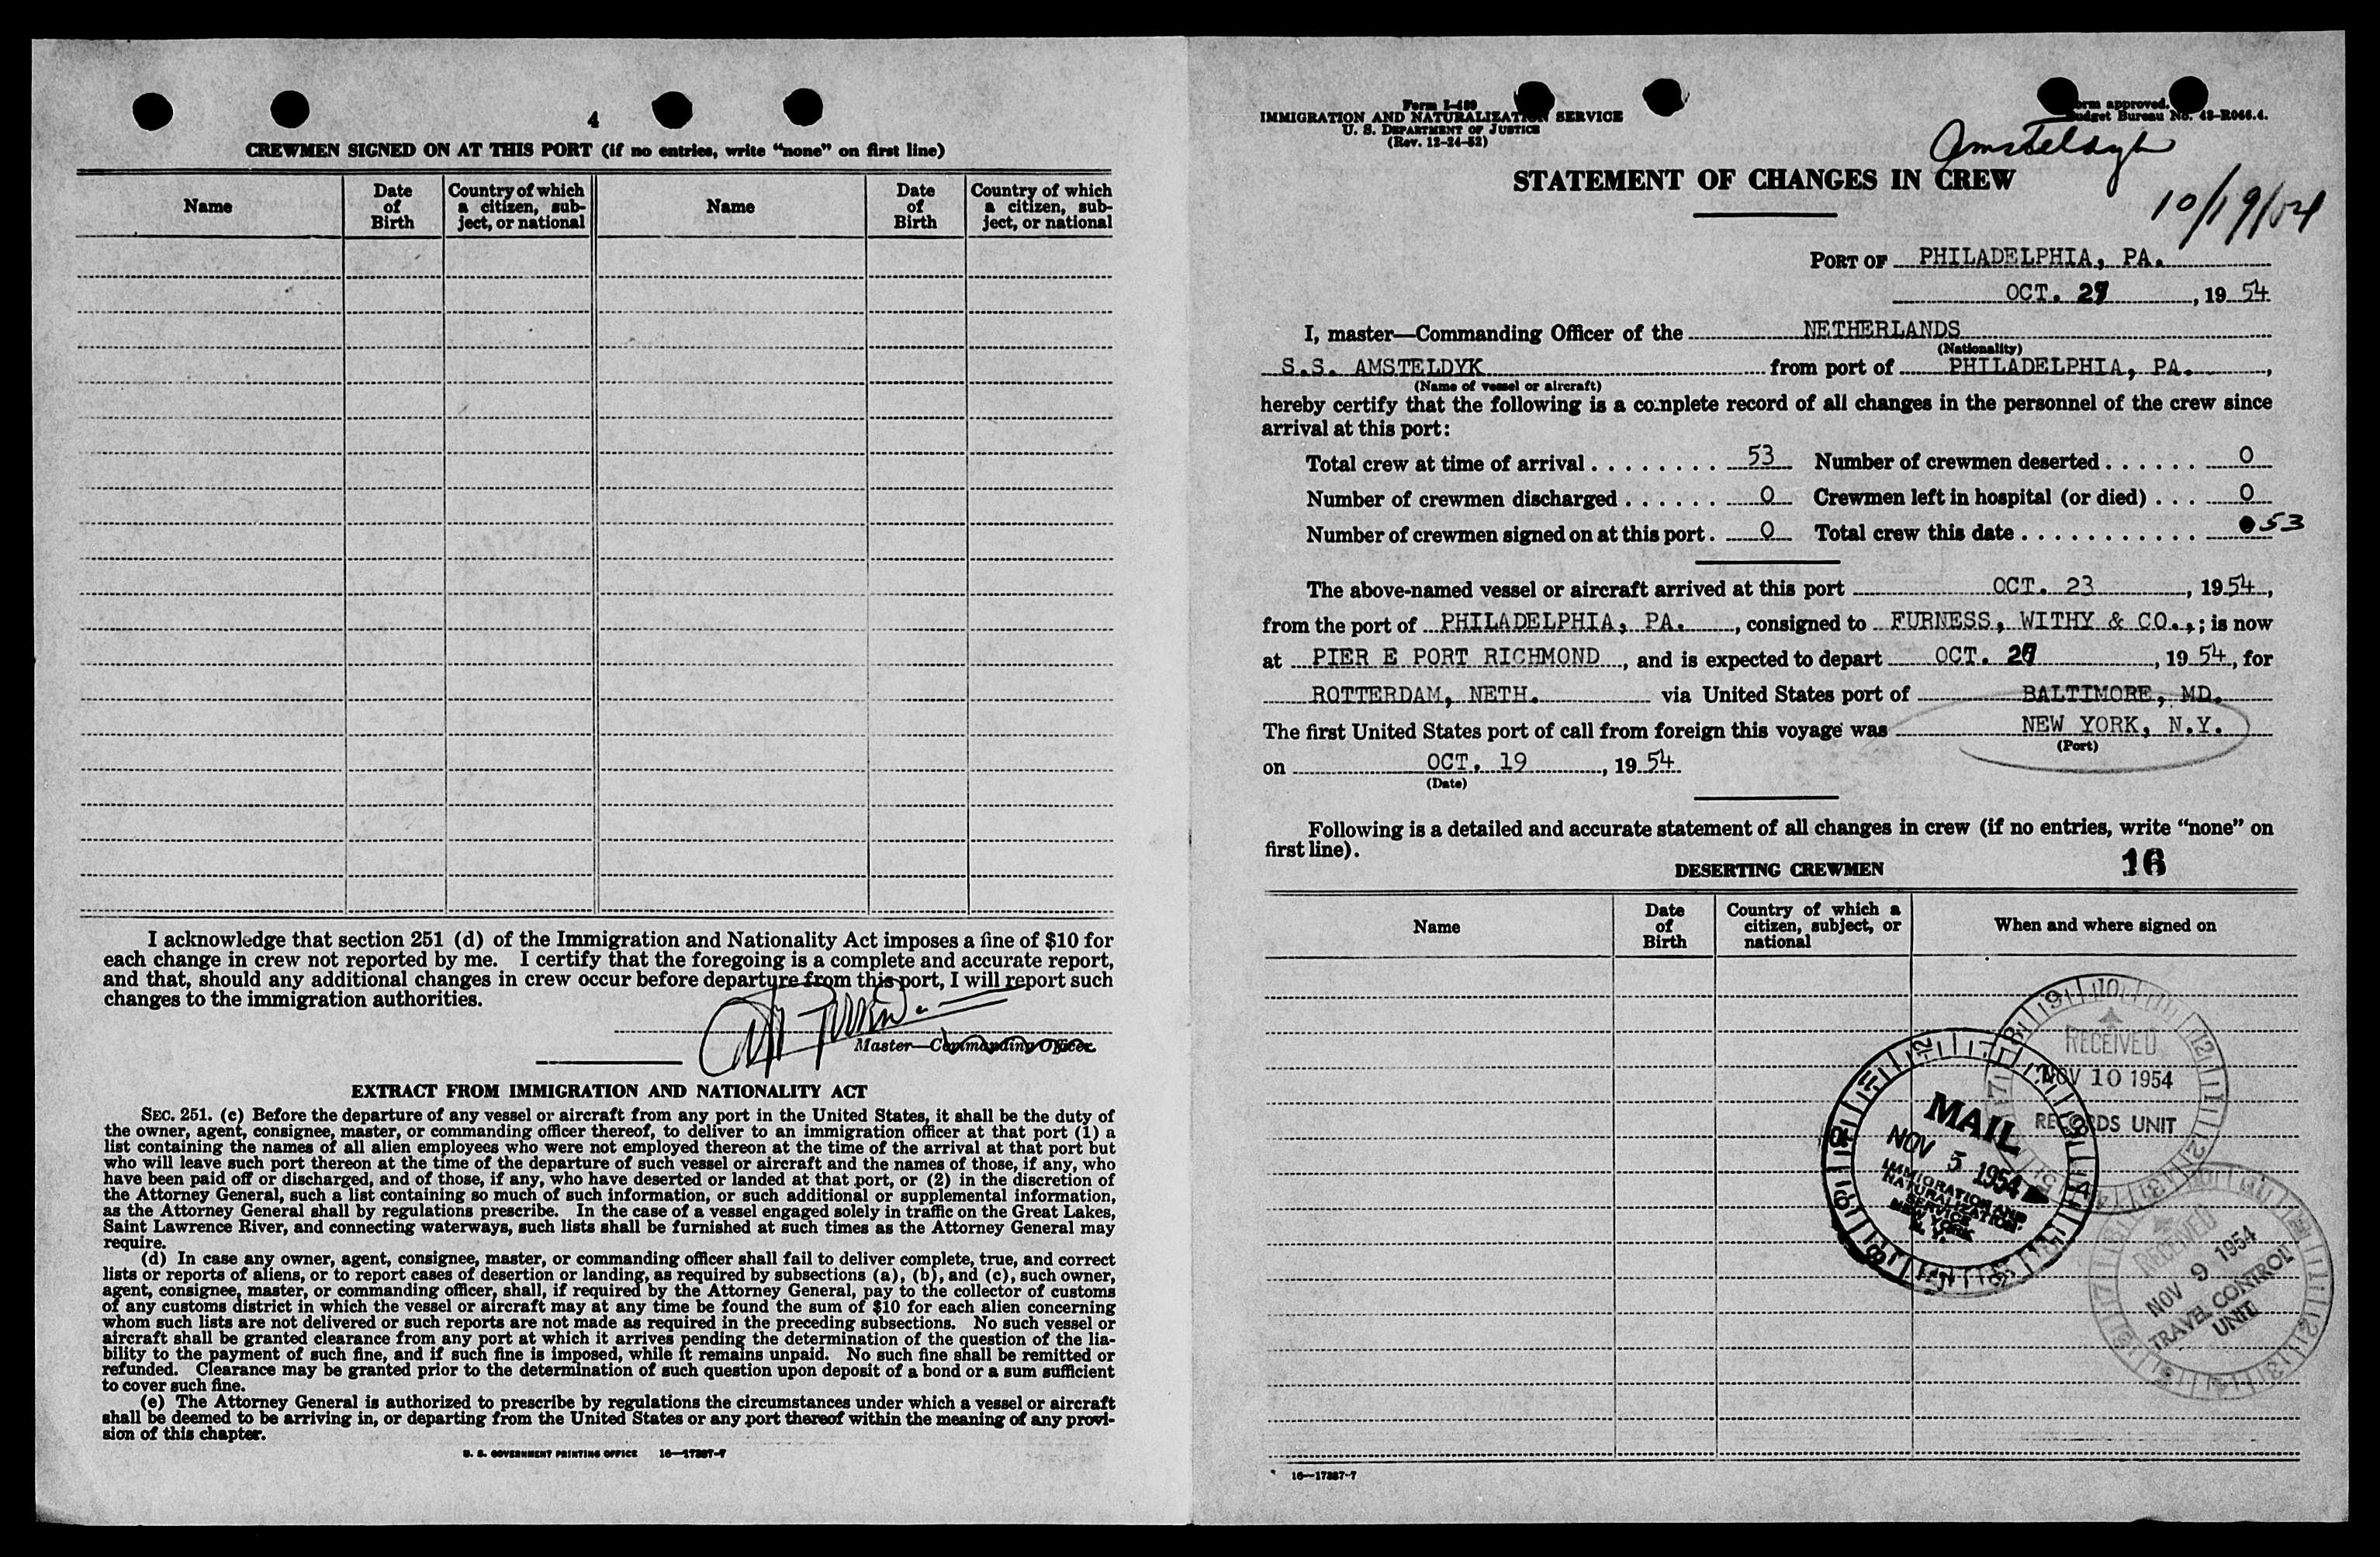 4
CREWMEN SIGNED ON AT THIS PORT (if no entries, write “none” on first line)
Name
Date of Birth
Country of which a citizen, subject, or national
Name
Date of Birth
Country of which a citizen, subject, or national
I acknowledge that section 251 (d) of the Immigration and Nationality Act imposes a fine of $10 for
each change in crew not reported by me. I certify that the foregoing is a complete and accurate report,
and that, should any additional changes in crew occur before departure from this port, I will report such
changes to the immigration authorities.
Master—Commanding Officer
EXTRACT FROM IMMIGRATION AND NATIONALITY ACT
SEC. 251. (c) Before the departure of any vessel or aircraft from any port in the United States, it shall be the duty of
the owner, agent, consignee, master, or commanding officer thereof, to deliver to an immigration officer at that port (1) a
list containing the names of all alien employees who were not employed thereon at the time of the arrival at that port but
who will leave such port thereon at the time of the departure of such vessel or aircraft and the names of those, if any, who
have been paid off or discharged, and of those, if any, who have deserted or landed at that port, or (2) in the discretion of
the Attorney General, such a list containing so much of such information, or such additional or supplemental information,
as the Attorney General shall by regulations prescribe. In the case of a vessel engaged solely in traffic on the Great Lakes,
Saint Lawrence River, and connecting waterways, such lists shall be furnished at such times as the Attorney General may
require.
(d) In case any owner, agent, consignee, master, or commanding officer shall fail to deliver complete, true, and correct
lists or reports of aliens, or to report cases of desertion or landing, as required by subsections (a), (b), and (c), such owner,
agent, consignee, master, or commanding officer, shall, if required by the Attorney General, pay to the collector of customs
of any customs district in which the vessel or aircraft may at any time be found the sum of $10 for each alien concerning
whom such lists are not delivered or such reports are not made as required in the preceding subsections. No such vessel or
aircraft shall be granted clearance from any port at which it arrives pending the determination of the question of the lia-
bility to the payment of such fine, and if such fine is imposed, while it remains unpaid. No such fine shall be remitted or
refunded. Clearance may be granted prior to the determination of such question upon deposit of a bond or a sum sufficient
to cover such fine.
(e) The Attorney General is authorized to prescribe by regulations the circumstances under which a vessel or aircraft
shall be deemed to be arriving in, or departing from the United States or any port thereof within the meaning of any provi-
sion of this chapter.
U. S. GOVERNMENT PRINTING OFFICE 16—17387-7
Form I-489
IMMIGRATION AND NATURALIZATION SERVICE
U. S. DEPARTMENT OF JUSTICE
(Rev. 12-24-52)
Form approved.
Budget Bureau No. 43-R066.4.
Amsteldyk
10/19/54
STATEMENT OF CHANGES IN CREW
PORT OF PHILADELPHIA, PA.
OCT. , 19 54
I, master—Commanding Officer of the NETHERLANDS
(Nationality)
S.S. AMSTELDYK from port of PHILADELPHIA, PA.,
(Name of vessel or aircraft)
hereby certify that the following is a complete record of all changes in the personnel of the crew since
arrival at this port:
Total crew at time of arrival . . . . . . . . 53 Number of crewmen deserted . . . . . . 0
Number of crewmen discharged . . . . . . 0 Crewmen left in hospital (or died) . . . 0
Number of crewmen signed on at this port . 0 Total crew this date . . . . . . . . . . . 53
The above-named vessel or aircraft arrived at this port OCT. 23, 19 54,
from the port of PHILADELPHIA, PA., consigned to FURNESS, WITHY & CO., ; is now
at PIER E PORT RICHMOND, and is expected to depart OCT. , 19 54, for
ROTTERDAM, NETH. via United States port of BALTIMORE, MD.
The first United States port of call from foreign this voyage was NEW YORK, N.Y.
(Port)
on OCT. 19, 19 54
(Date)
Following is a detailed and accurate statement of all changes in crew (if no entries, write “none” on
first line).
16
DESERTING CREWMEN
Name
Date of Birth
Country of which a citizen, subject, or national
When and where signed on
RECEIVED
NOV 10 1954
RECORDS UNIT
MAIL
NOV 5 1954
IMMIGRATION AND
NATURALIZATION
SERVICE
NEW YORK
N. Y.
RECEIVED
NOV 9 1954
TRAVEL CONTROL
UNIT
16—17387-7